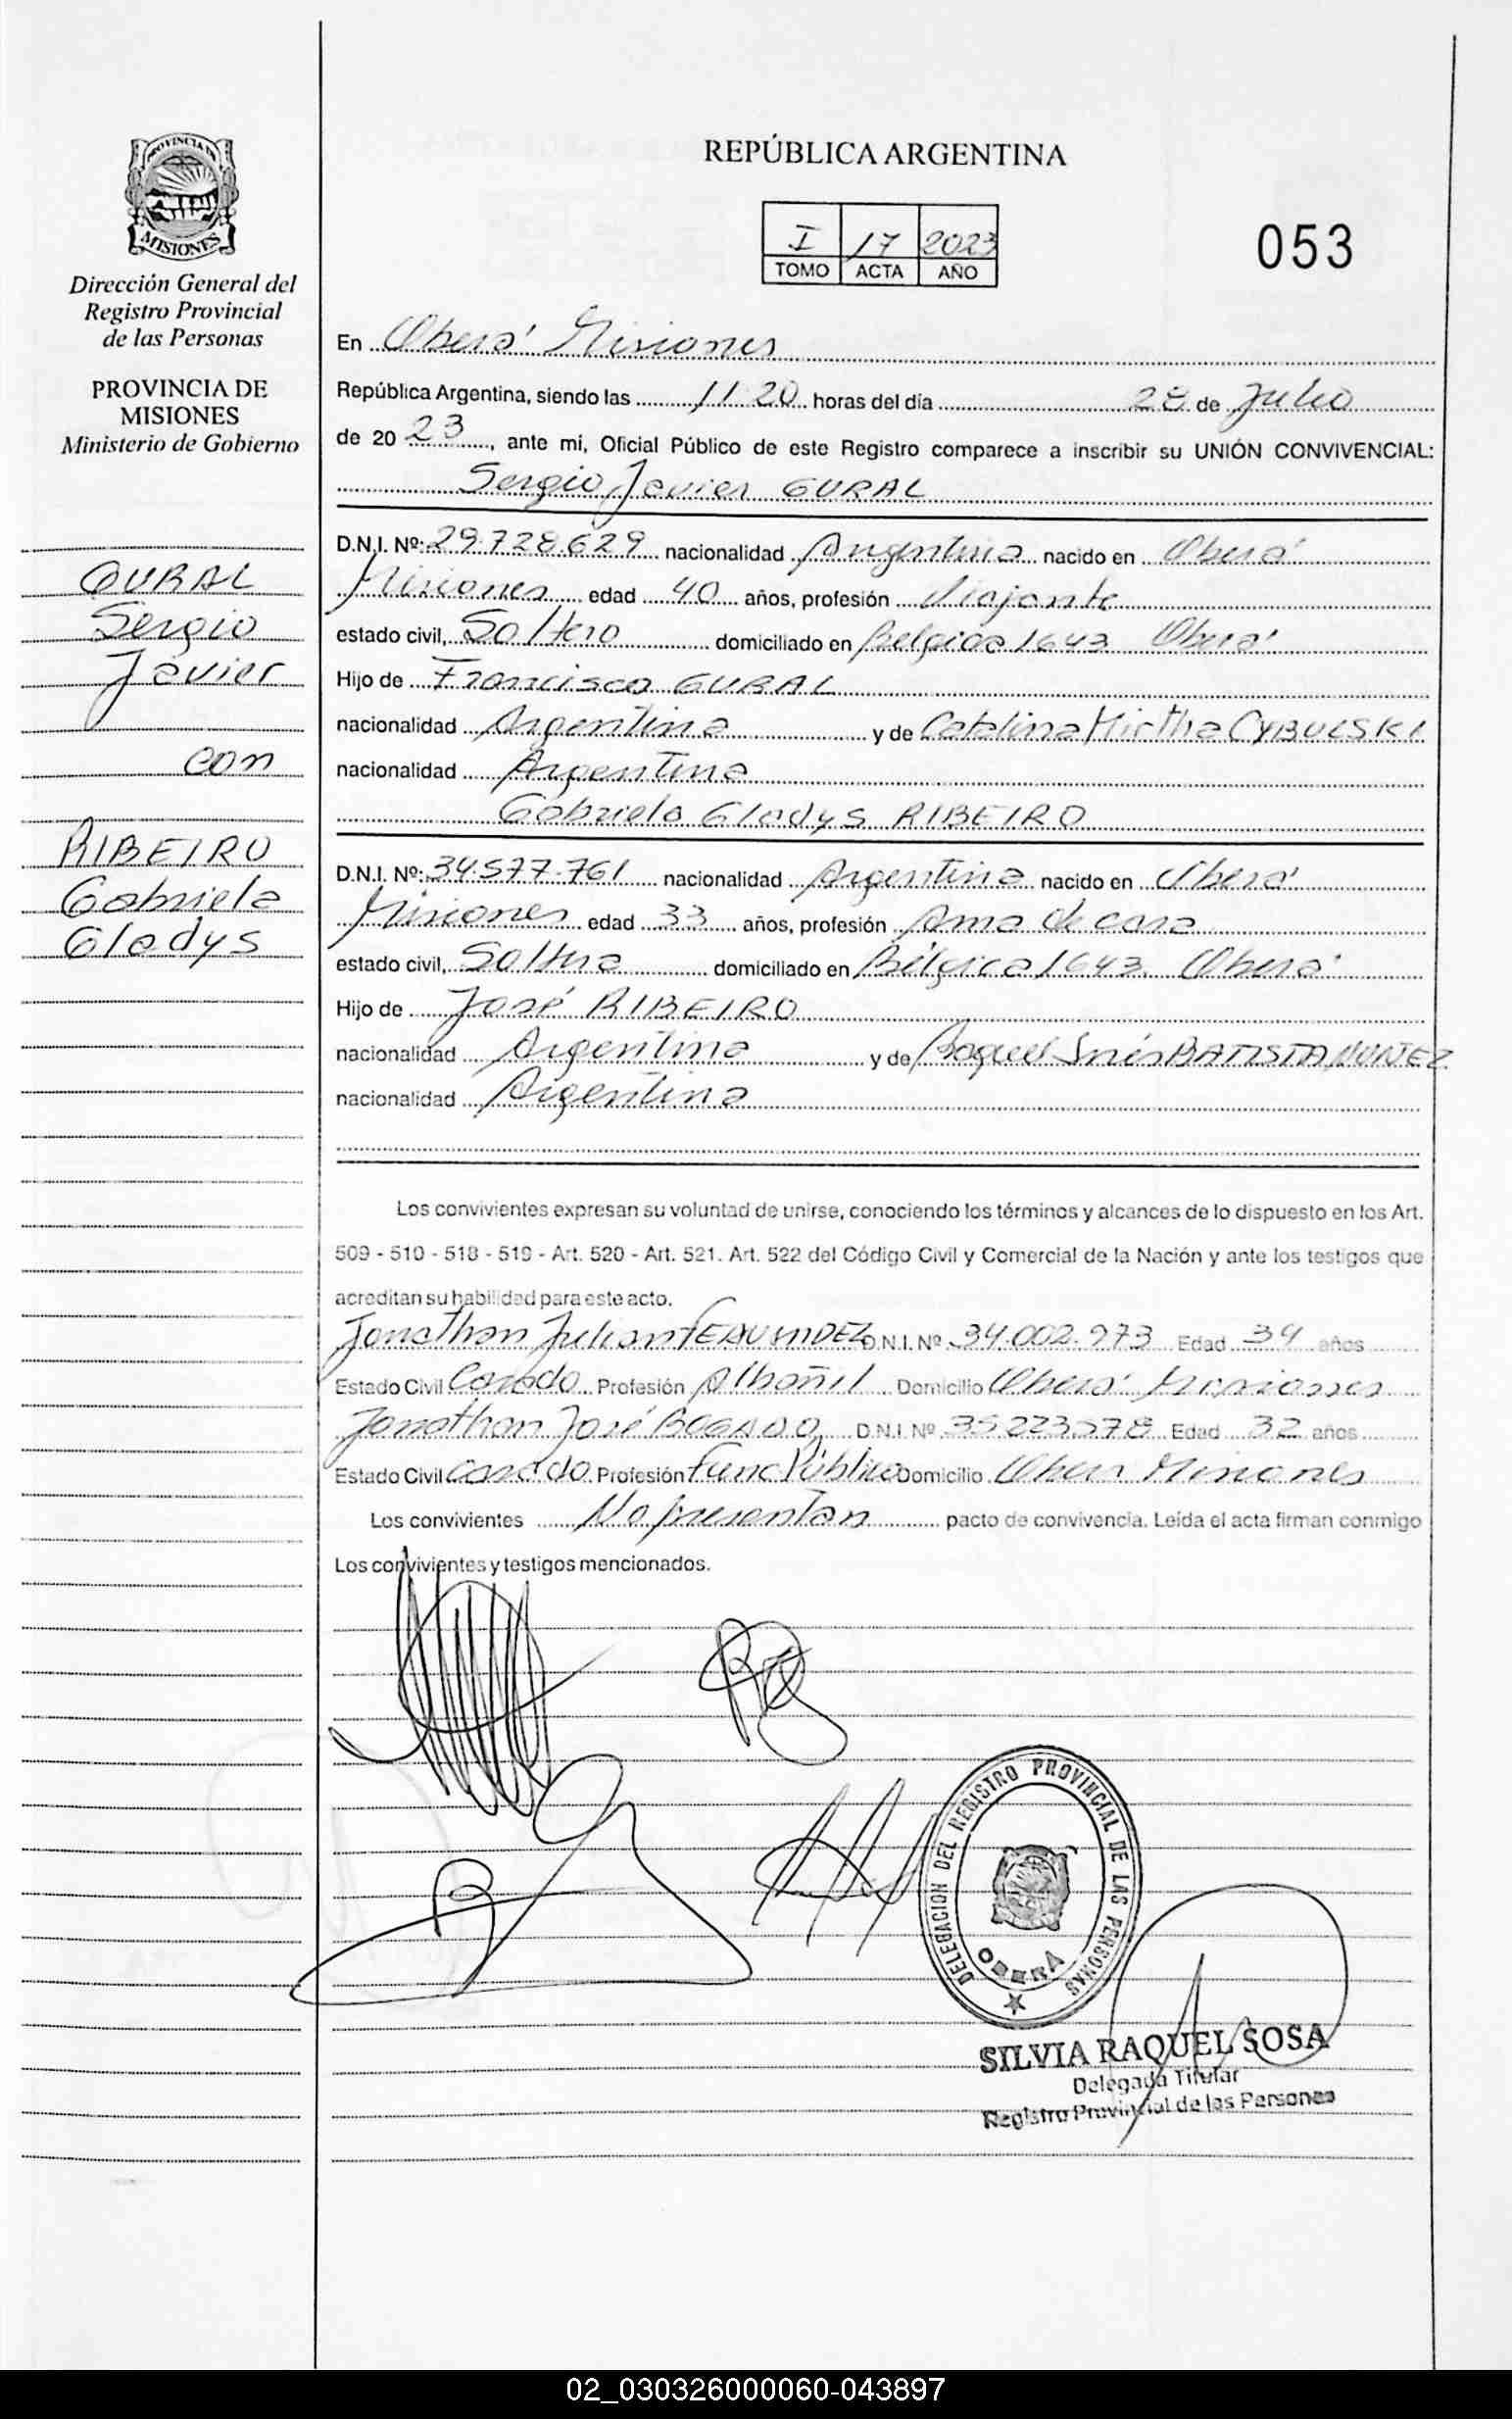 PROVINCIA DE
MISIONES
Dirección General del
Registro Provincial
de las Personas
PROVINCIA DE
MISIONES
Ministerio de Gobierno
GURAL
Sergio
Javier
con
RIBEIRO
Gabriela
Gladys
REPÚBLICA ARGENTINA
I 17 2023
TOMO ACTA AÑO
053
En Oberá Misiones
República Argentina, siendo las 11 20 horas del día 28 de Julio
de 20 23, ante mí, Oficial Público de este Registro comparece a inscribir su UNIÓN CONVIVENCIAL:
Sergio Javier GURAL
D.N.I. Nº: 29.728.629 nacionalidad Argentina nacido en Oberá
Misiones edad 40 años, profesión Viajante
estado civil, Soltero domiciliado en Belgica 1643 Oberá
Hijo de Francisco GURAL
nacionalidad Argentina y de Catalina Mirtha CYBULSKI
nacionalidad Argentina
Gabriela Gladys RIBEIRO
D.N.I. Nº: 34.577.761 nacionalidad Argentina nacido en Oberá
Misiones edad 33 años, profesión Ama de casa
estado civil, Soltera domiciliado en Bélgica 1643 Oberá
Hijo de José RIBEIRO
nacionalidad Argentina y de Raquel Inés BATISTA NUNEZ
nacionalidad Argentina
Los convivientes expresan su voluntad de unirse, conociendo los términos y alcances de lo dispuesto en los Art.
509 - 510 - 518 - 519 - Art. 520 - Art. 521. Art. 522 del Código Civil y Comercial de la Nación y ante los testigos que
acreditan su habilidad para este acto.
Jonathan Julian D.N.I. Nº 34.002.973 Edad 34 años
Estado Civil Casado Profesión Albañil Domicilio Oberá Misiones
Jonathan José BOGADO D.N.I. Nº 35223578 Edad 32 años
Estado Civil Casado Profesión Func Público Domicilio Oberá Misiones
Los convivientes No presentan pacto de convivencia. Leída el acta firman conmigo
Los convivientes y testigos mencionados.
DELEGACION DEL REGISTRO PROVINCIAL DE LAS PERSONAS
OBERA
SILVIA RAQUEL SOSA
Delegada Titular
Registro Provincial de las Personas
02_030326000060-043897